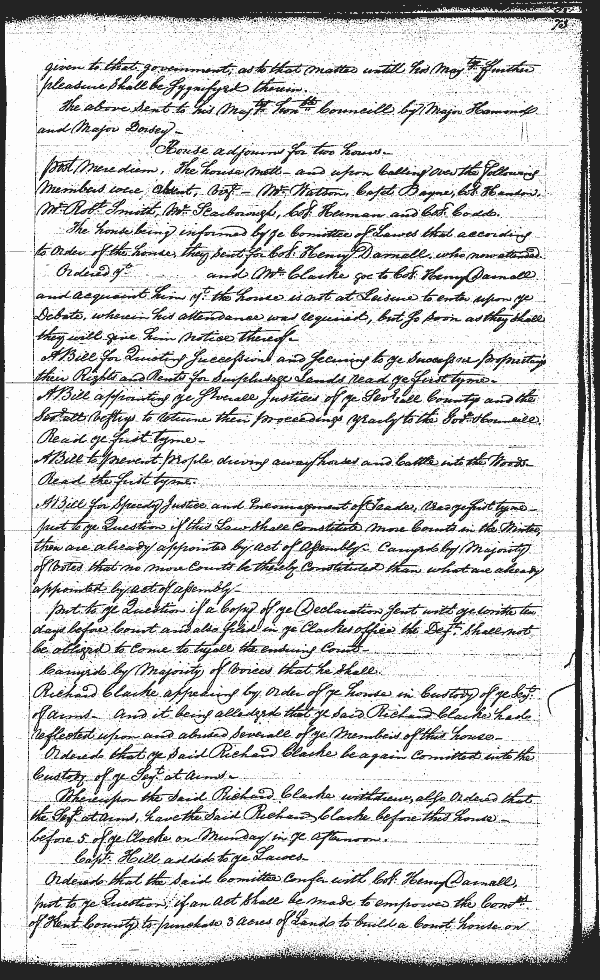 73
given to that government, as to that matter untill his Maj:ty ffurther
pleasure Shall be Sygnifyed therein.
The above Sent to his Maj:tys hon:ble Councill by Major Hamond
and Major Dorsey -
House adjourns for two hours -
post Merediem, The house mett - and upon Calling over the following
Members were absent, viz:t - Mr Watson, Capt Bayne, Col: Hanson,
Mr Rob:t Smith, Mr Scarborough, Col: Herman and Col: Codd.
The house being informed by ye Comittee of Lawes that according
to order of the house, they sent for Col: Henry Darnall, who now attends
Ordered yt and Mr Clarke goe to Col: Henry Darnall
and acquaint him yt the house is not at Leisure to enter upon ye
Debate, wherein his attendance was required, but so soon as they shall
they will give him notice thereof -
A Bill for Quieting Successions and Secureing to ye Successive Proprietors
their Rights and Rents for Surplusage Lands read ye first tyme -
A Bill appointing ye Severall Justices of ye Sev:all County and the
Sev:all Vestrys to returne their proceedings yearly to the Gov:r & Councill
Read ye first tyme -
A Bill to prevent People driving away horses and Cattle into the Woods -
Read the first tyme.
A Bill for Speedy Justice and Encouragement of Trade, read ye first tyme -
put to ye Question if this Law Shall Constitute more Courts in the Winter,
then are already appointed by act of Assembly - Carryed by Majority
of Votes that no more Courts be thereby Constituted than what are already
appointed by act of assembly -
put to ye Question if a Copy of ye Declaration Sent with ye writt ten
days before Court and also filed in ye Clarkes office the Def:t Shall not
be obliged to come to tryall the ensuing Court -
Carryed by Majority of Voices that he Shall.
Richard Clarke appearing by order of ye house in Custody of ye Serj:t
of arms - And it being alledged that ye Said Richard Clarke had
reflected upon and abused Severall of ye Members of this house -
Ordered that ye Said Richard Clarke be again Comitted into the
Custody of ye Serj:t at arms -
Whereupon the Said Richard Clarke withdrew, also Ordered that
the Serj:t at arms, have the Said Richard Clarke before this house -
before 5 of ye Clocke on Munday in ye afternoon.
Capt. Hill added to ye Lawes -
Ordered that the Said Comittee Confer with Col: Henry Darnall,
put to ye Question, if an act Shall be made to empower the Com:rs
of Kent County to purchase 3 acres of Land to build a Court house on